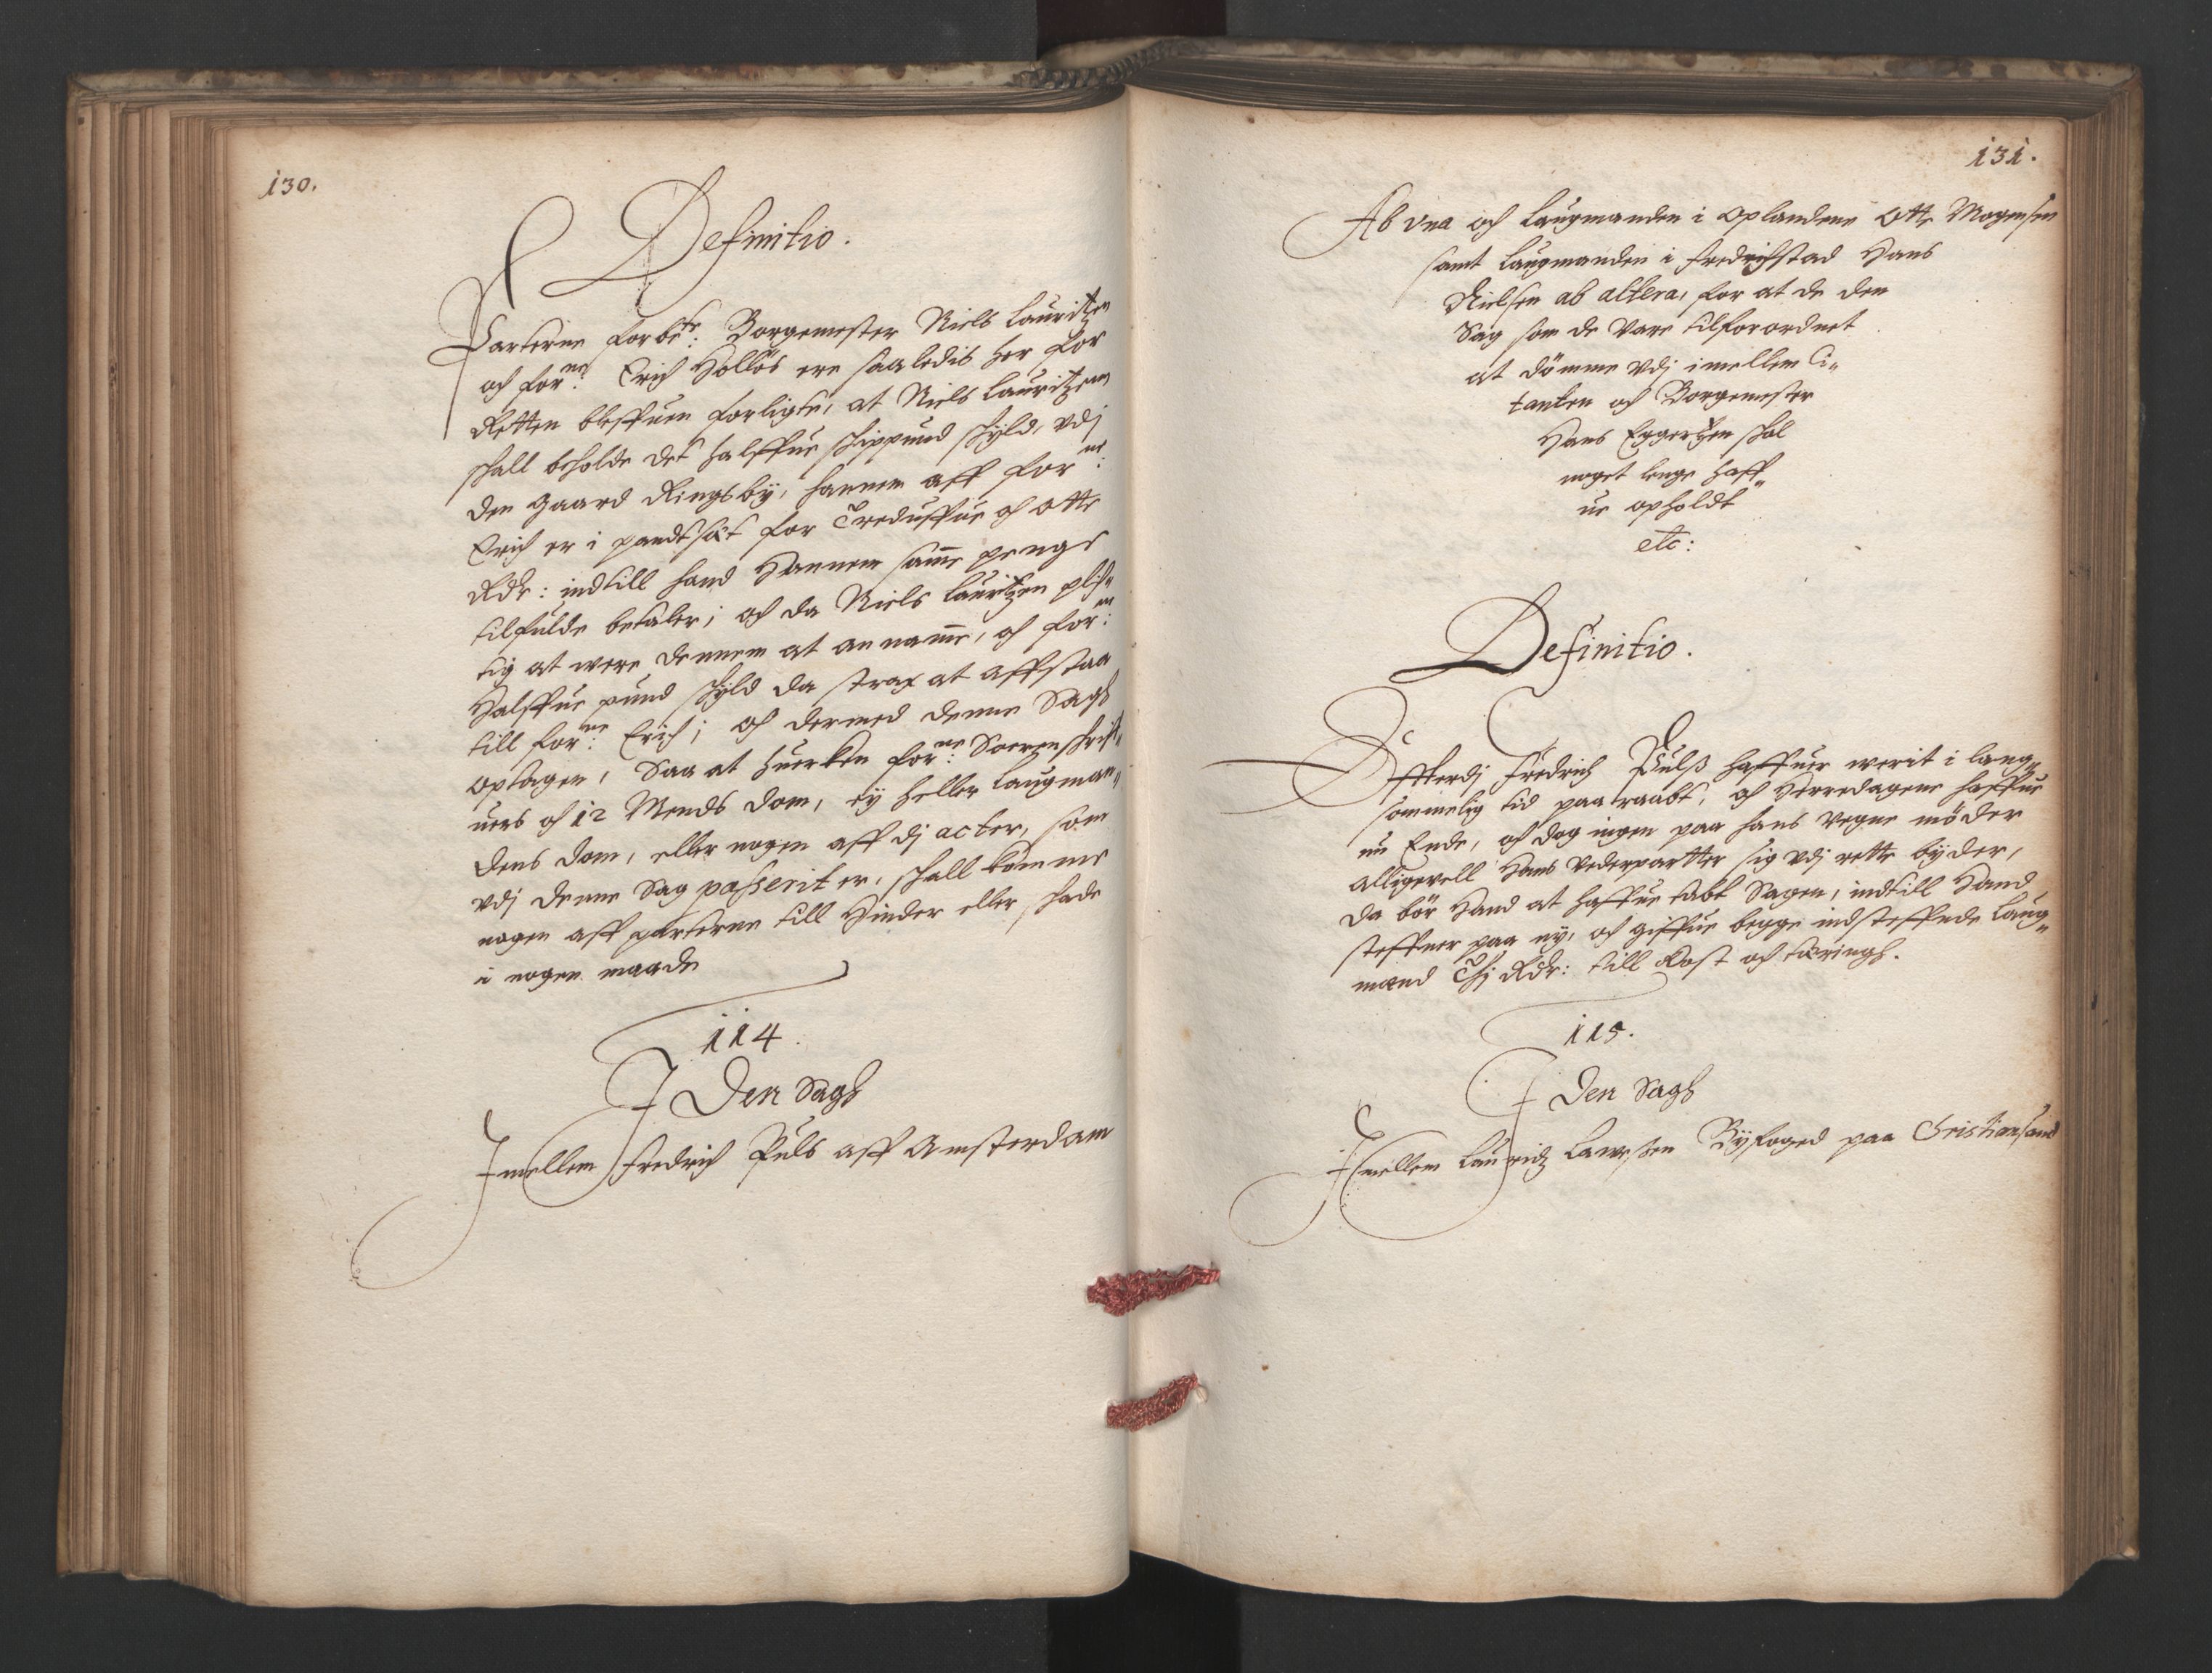 130.
Definitio.
Parterne forbete: Borgemester Niels Lauritzen
och forne: Erich Hollös ere saaledis her for
Retten bleffuen forligte, at Niels Lauritzenn
schall beholde det halffue schippund schyld, vdj
den gaard Ringsbÿ, hannem aff forne:
Erich er i pandtsæt for Treduffue och otte
Rdr: indtill hand Hannem samme penge
tilfulde betaler; och da Niels Lauritzen plich„
tig at were dennem at annamme, och forne:
Halffue pund schyld da strax at affstaa
till forne: Erich; och dermed denne Sagh
optagen, Saa at huercken forne: Sorenschrif„
uers och 12 Mends dom, eÿ heller Laugman„
dens dom, eller nogen aff dj acter, som
vdj denne Sag passerit er, schall komme
nogen aff parterne till Hinder eller schade
i nogen maade
114.
I Den Sagh
Imellem Fredrich Puls aff Amsterdam
131.
Ab vna och Laugmanden i Oplandene Otte Mogensen
samt Laugmanden i Fredrichstad Hans
Nielsen ab altera, for at de den
Sag som de vare tilforordnet
at dömme vdj imellem Ci„
tanten och Borgemester
Hans Eggertzen schal
noget lenge haff„
ue opholdt
etc:
Definitio.
Effterdj Fredrich Pulß haffuer werit i lang„
sommelig tid paaraabt, och Herredagene haffue
nu Ende, och dog ingen paa hans vegne möder
alligevell Hans vederpartter sig vdj rette bÿder,
da bör Hand at haffue tabt Sagen, indtill Hand
steffner paa nÿ, och giffue begge indsteffnede Laug„
mænd Thj Rdr: till Kost och tæringh.
115.
I Den Sagh
Imellem Lauridz Lawesen Bÿfoged paa Christiansand